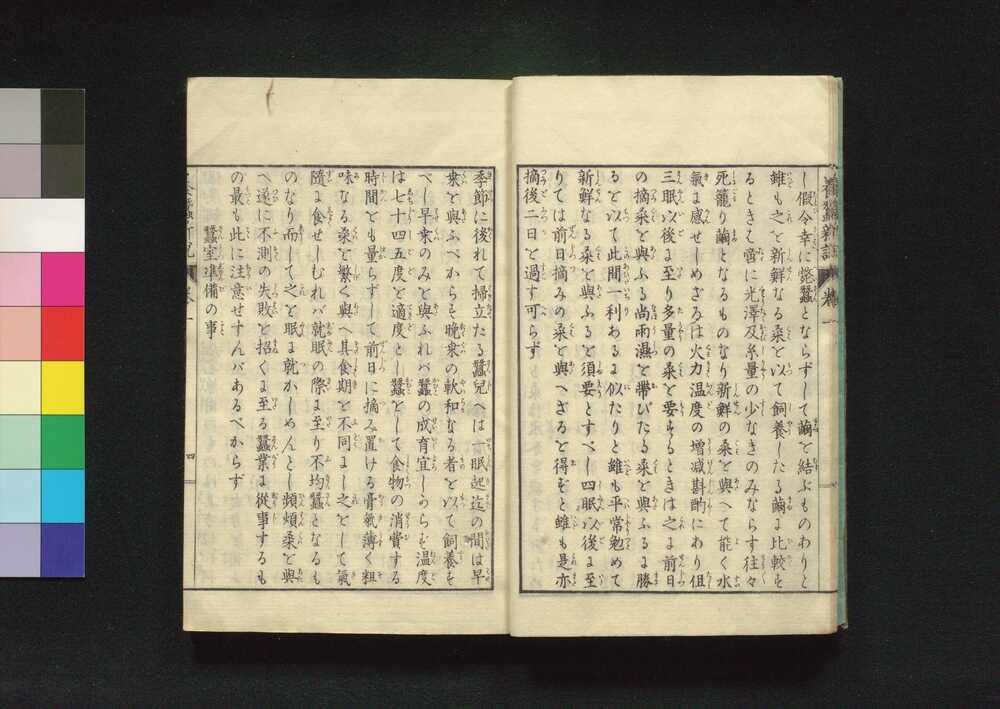 し假令幸に斃蠶とならずして繭を結ぶものありと
雖も之を新鮮なる桑を以て飼養したる繭に比較を
るときは啻に光澤及糸量の少なきのみならす往々
死籠り繭となるものなり新鮮の桑を與へて能く水
氣に感せしめざるは火力温度の増减斟酌にあり但
三眠以後に至り多量の桑を要するときは之に前日
の摘桑を與ふる尚雨濕を帶びたる桑を與ふるに勝
るを以て此間一利あるに似たりと雖も平常勉めて
新鮮なる桑を與ふるを須要とすべし四眠以後に至
りては前日摘みの桑を與へざるを得ずと雖も是亦
摘後二日を過す可らず
季節に後れて掃立たる蠶兒へは一眠起迄の間は早
桒を與ふべからを晚桒の軟和なる者を以て飼養を
べし早桒のみを與ふれバ蠶の成育宜しからを温度
は七十四五度を適度とし蠶をして食物の消費する
時間をも量らずして前日に摘み置ける膏氣薄く粗
味なる桑を繁く與へ其食期を不同にし之をして氣
隨に食せしむれバ就眠の際に至り不均蠶となるも
のなり而して之を眠に就かしめんとし頻頻桑を與
へ遂に不測の失敗を招くに至る蠶業に從事するも
の最も此に注意せすんバあるべからず
蠶室準備の事
養蠶新說 卷一
四